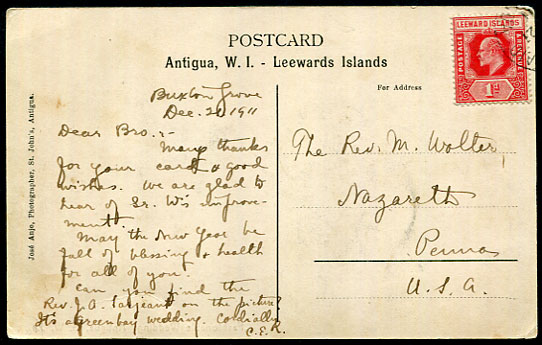 POSTCARD
Antigua, W. I. - Leewards Islands
For Address
LEEWARD ISLANDS
POSTAGE
& REVENUE
1d
José Anjo, Photographer, St. John's, Antigua.
Buxton Grove
Dec. 1911
Dear Bro:-
Many thanks
for your card & good
wishes. We are glad to
hear of Sr. W's improve-
ment.
May the New Year be
full of blessing & health
for all of you.
Can you find the
Rev. J. A. Sargeant on the picture?
It's a greenbay wedding. Cordially
C.E.R.
The Rev. M. Wolter,
Nazareth
Penna
U.S.A.